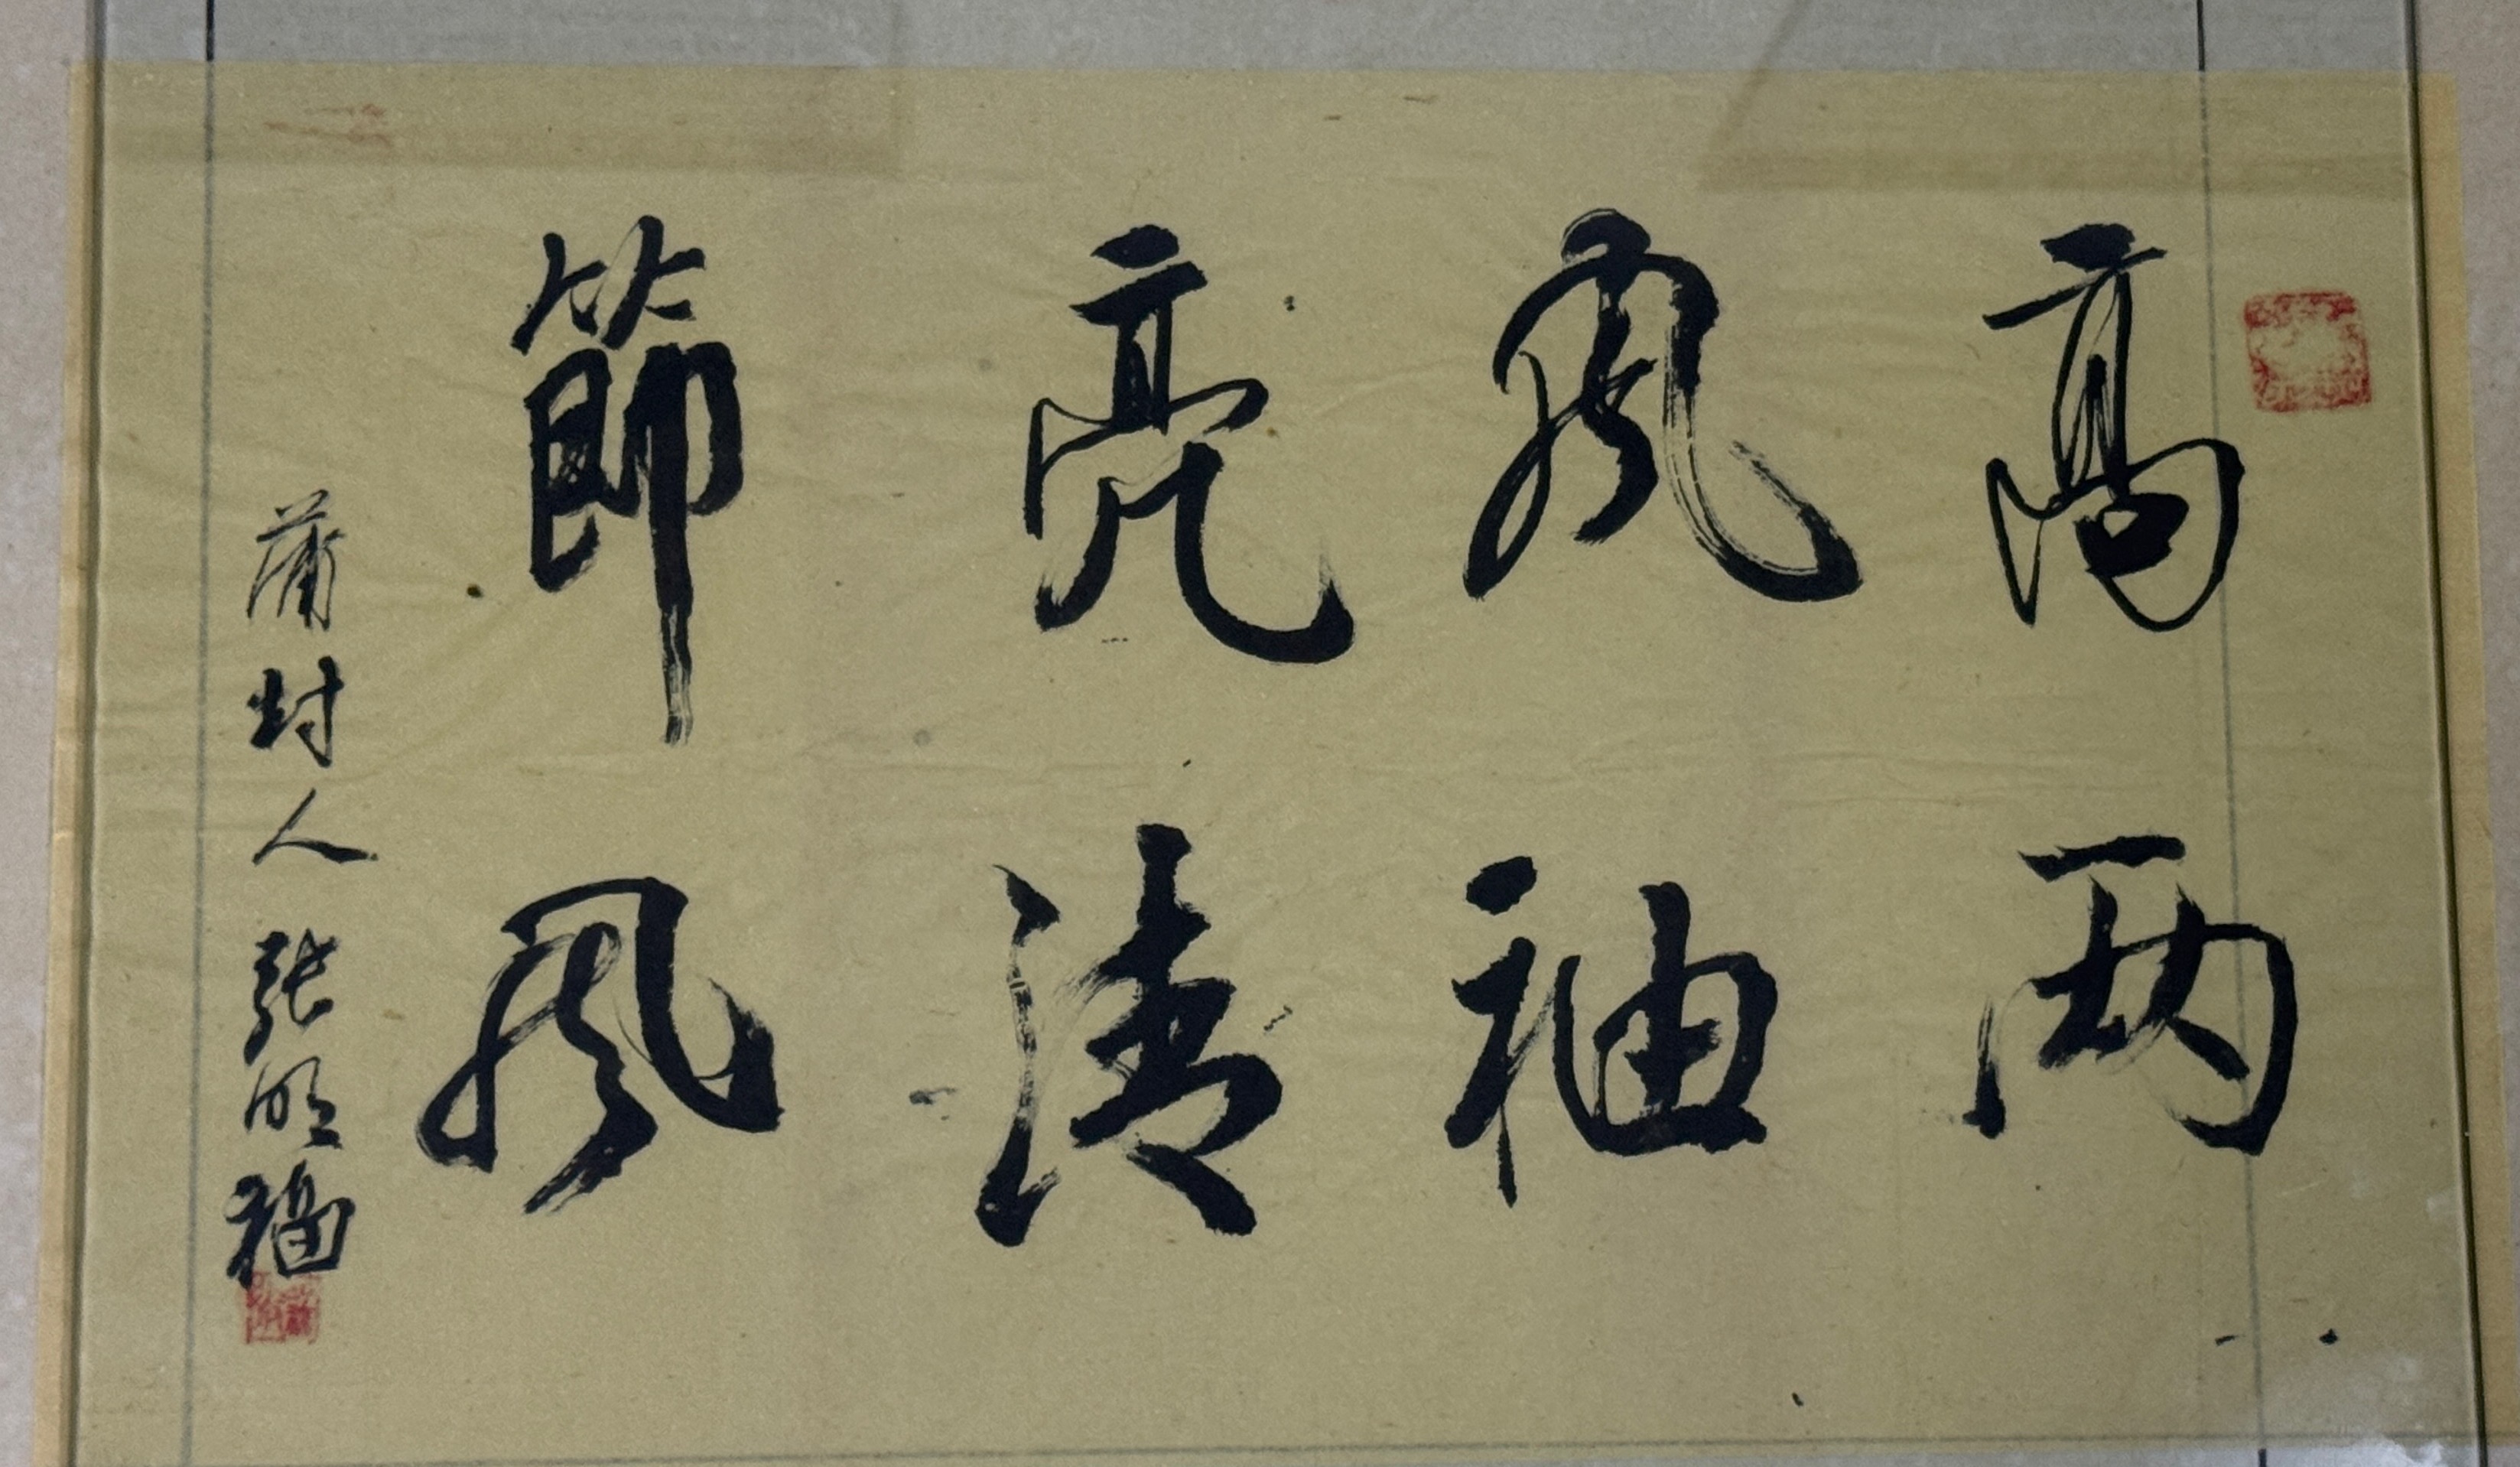 高風亮節
两袖清風
蒲村人張明福